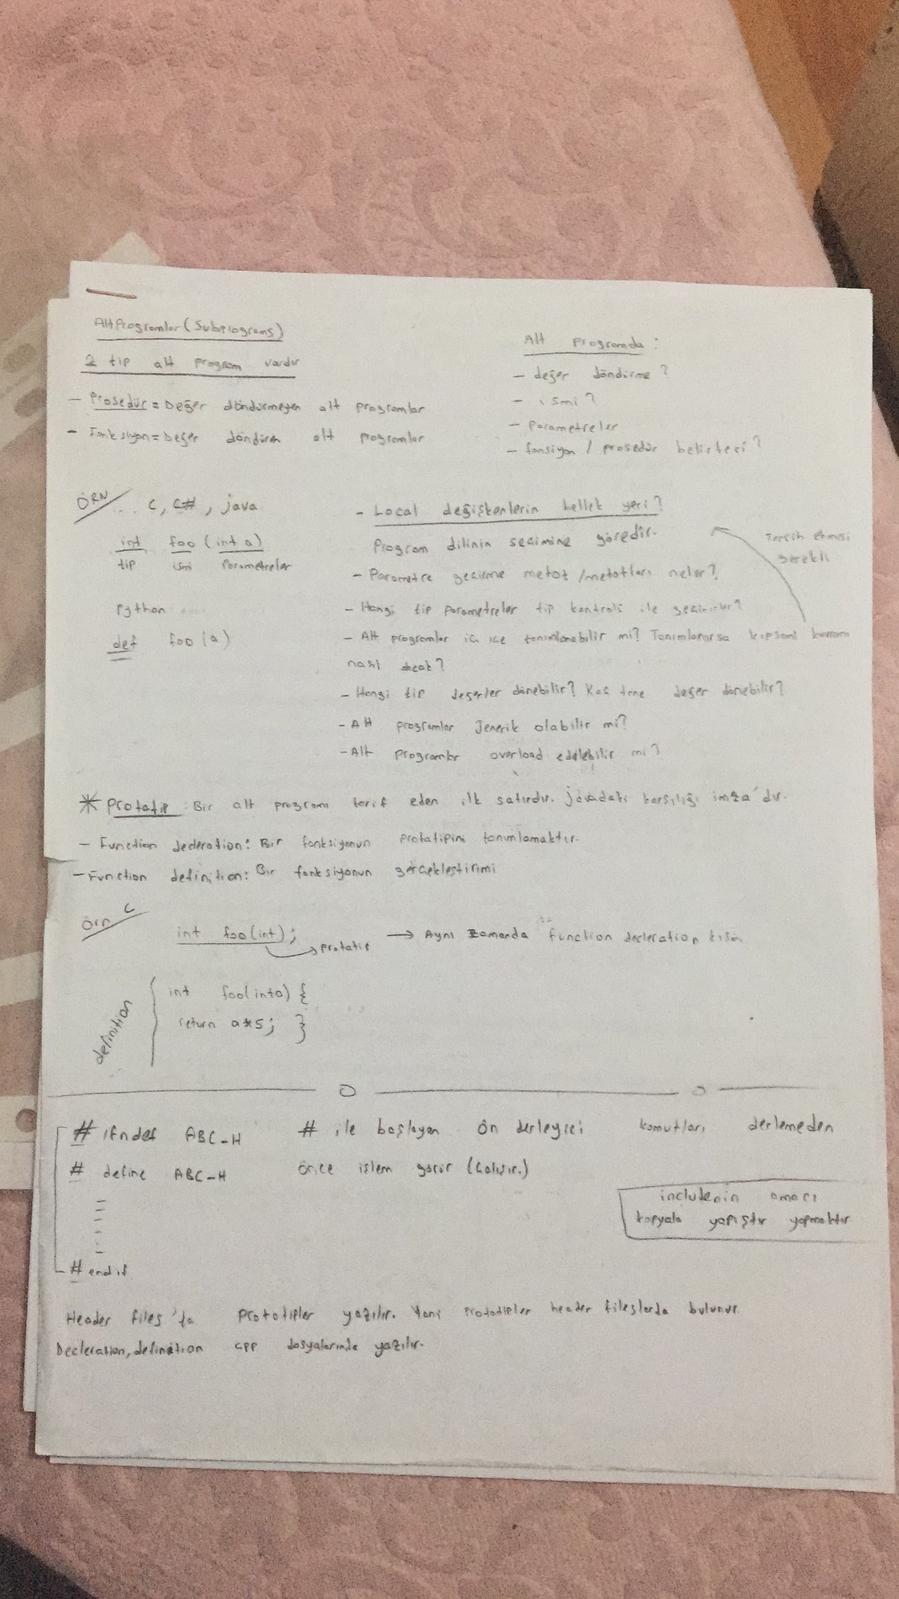 Alt Programlar (Subprograms)
2 tip alt program vardır
- Prosedür = Değer döndürmeyen alt programlar
- Fonksiyon = Değer döndüren alt programlar
Alt Programda :
- değer döndürme ?
- ismi ?
- Parametreler
- fonsiyon / prosedür belirteci ?
ÖRN C, C# , java
int foo (int a)
tip ismi parametreler
Python
def foo (a)
- Local değişkenlerin bellek yeri ?
Program dilinin seçimine göredir.
- Parametre geçirme metot /metotları neler ?
- Hangi tip parametreler tip kontrolü ile geçirilir?
- Alt programlar iç içe tanımlanabilir mi? Tanımlanırsa kapsam kavramı
nasıl olacak ?
- Hangi tip değerler dönebilir ? Kaç tane değer dönebilir ?
- Alt programlar Jenerik olabilir mi?
- Alt programlar overload edilebilir mi ?
Tercih etmesi
gerekli
* Prototip : Bir alt programı tarif eden ilk satırdır. javadaki karşılığı imza'dır.
- Function decleration : Bir fonksiyonun prototipini tanımlamaktır.
- Function definition : Bir fonksiyonun gerçekleştirimi
Örn C
int foo(int) ; → Aynı zamanda function decleration kısmı
prototip
definition
int foo(int a) {
return a*5 ; }
# ifndef ABC-H
# define ABC-H
# endif
# ile başlayan ön derleyici komutları derlemeden
önce işlem görür (Çalışır.)
includenin amacı
kopyala yapıştır yapmaktır
Header files 'ta prototipler yazılır. Yani prototipler header fileslarda bulunur.
Decleration, definition cpp dosyalarında yazılır.